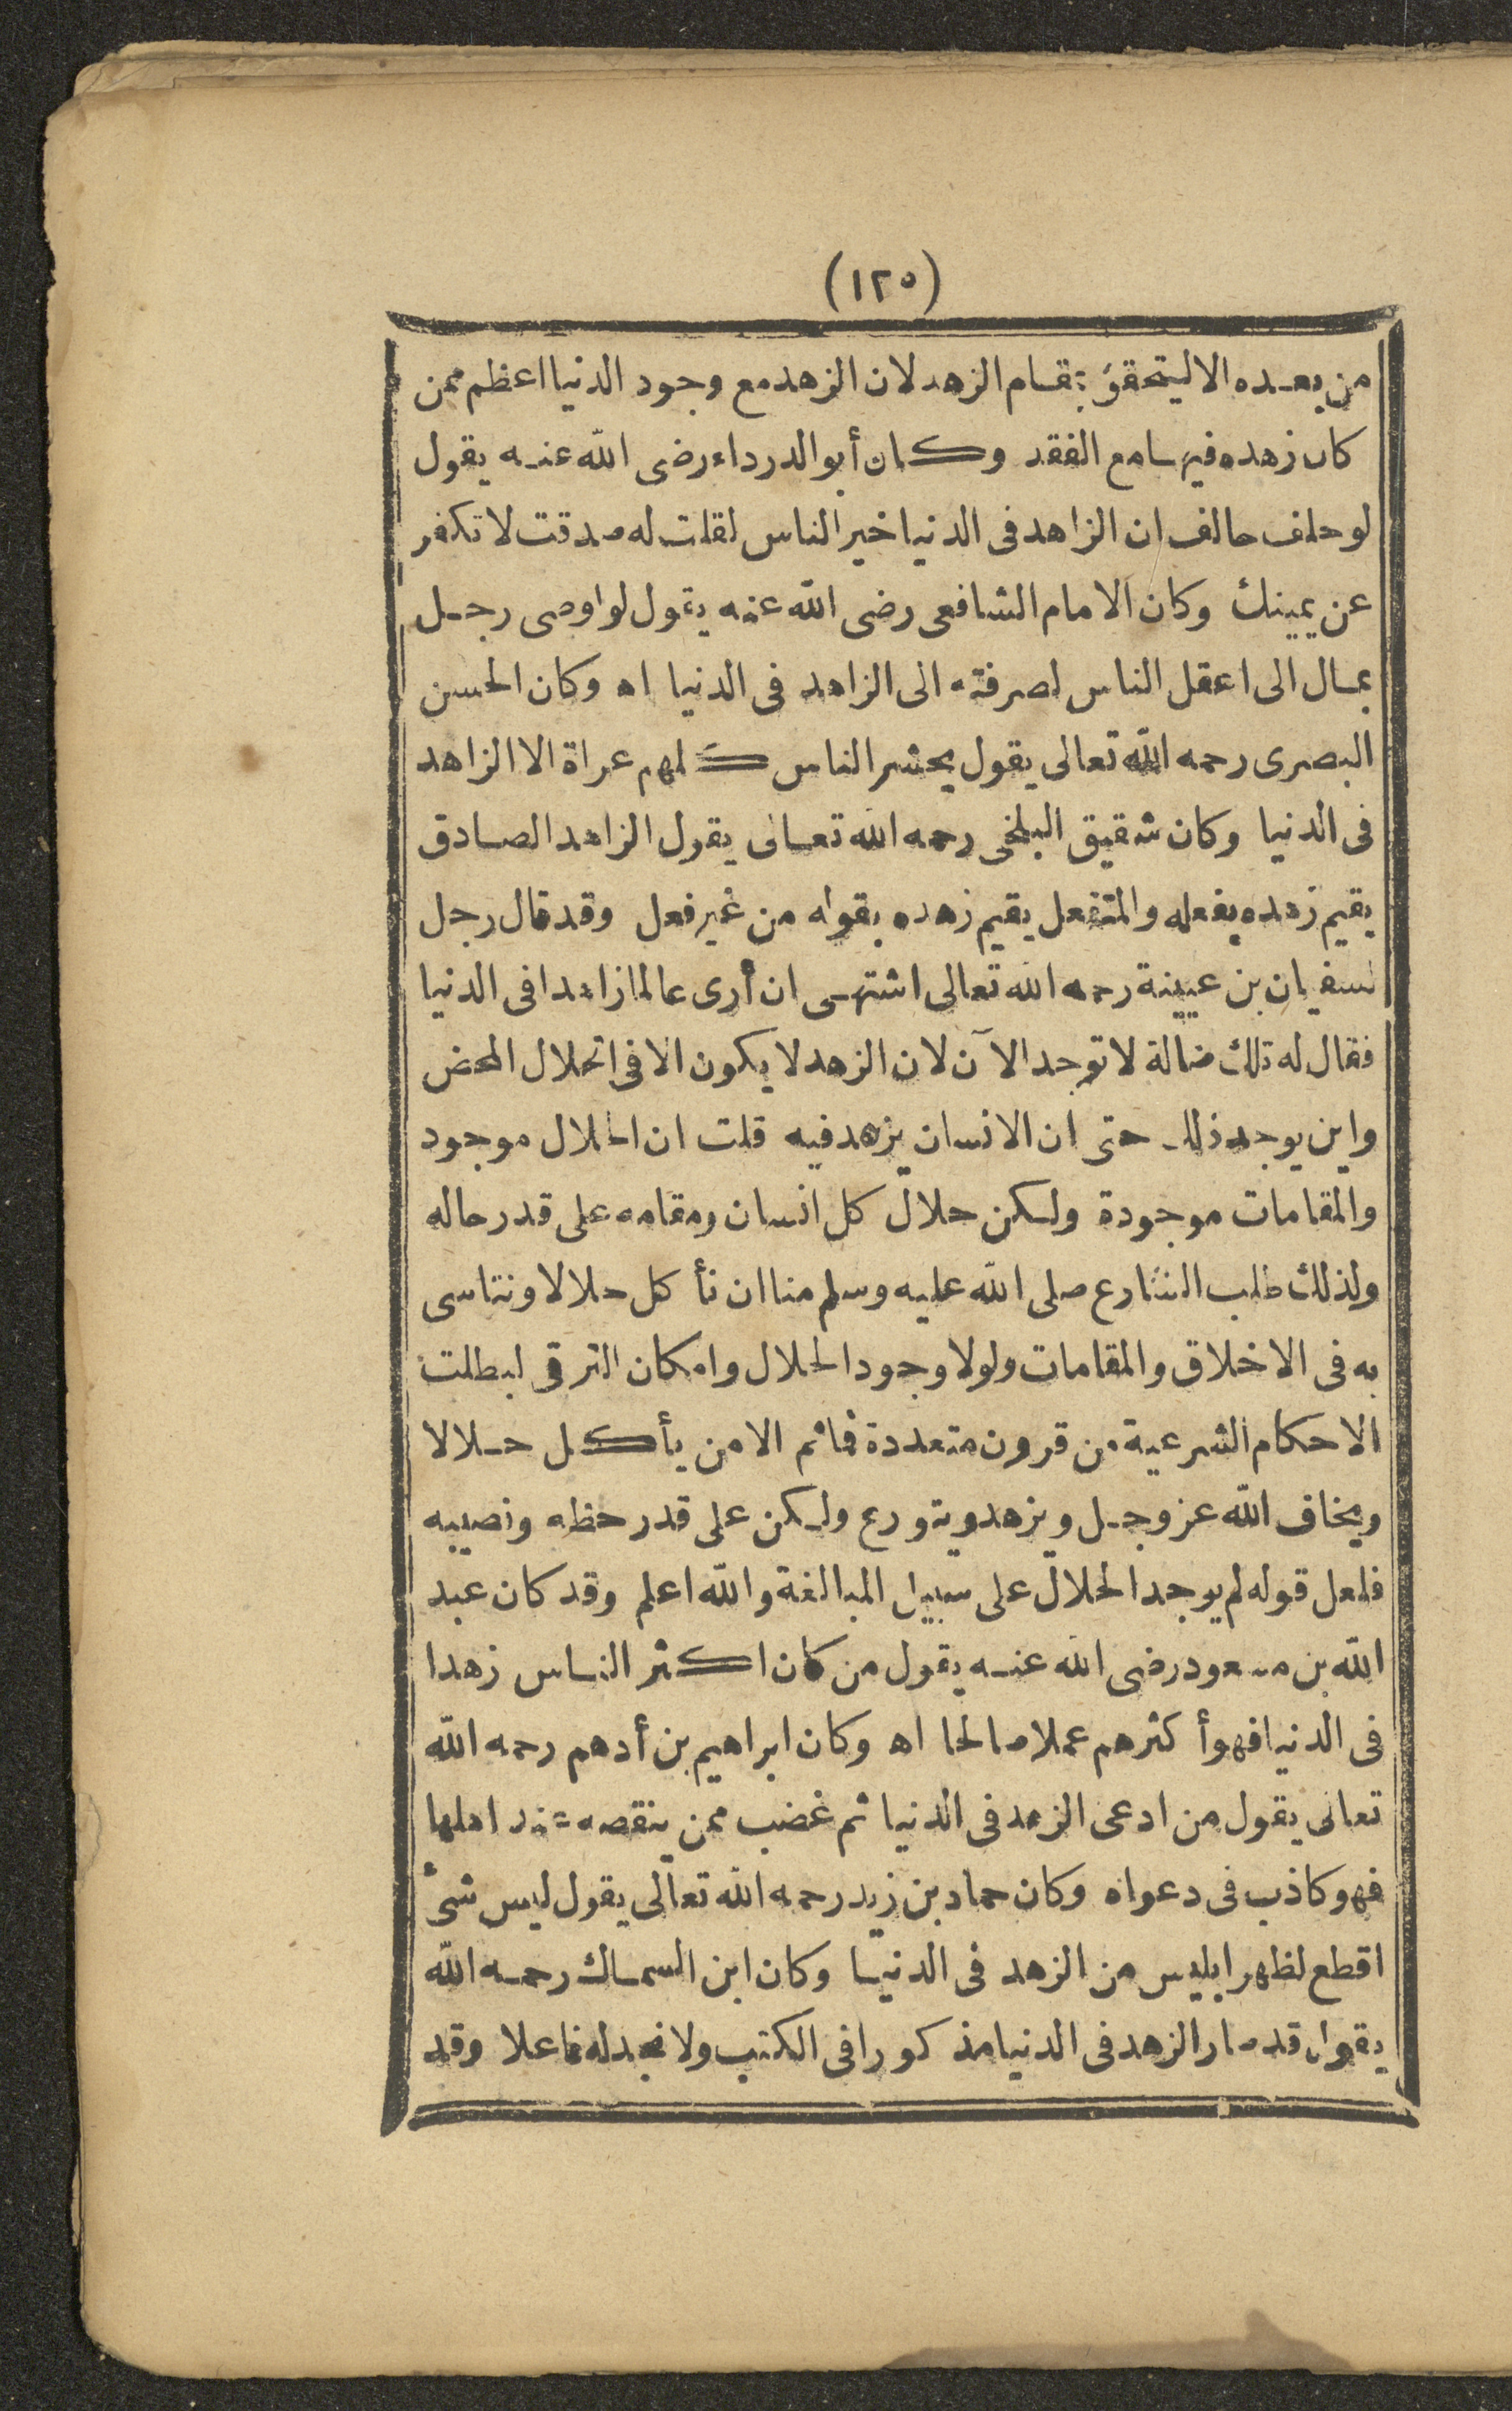 (١٢٥)
من بعده الا ليتحقق بمقام الزهد لان الزهد مع وجود الدنيا اعظم ممن
كان زهده فيها مع الفقد وكان أبو الدرداء رضى الله عنه يقول
لو حلف حالف ان الزاهد فى الدنيا خير الناس لقلت له صدقت لا تكفر
عن يمينك وكان الامام الشافعى رضى الله عنه يقول لو اوصى رجل
بمال الى اعقل الناس لصرفته الى الزاهد فى الدنيا اه وكان الحسن
البصرى رحمه الله تعالى يقول يحشر الناس كلهم عراة الا الزاهد
فى الدنيا وكان شقيق البلخى رحمه الله تعالى يقول الزاهد الصادق
يقيم زهده بفعله والمتفعل يقيم زهده بقوله من غير فعل وقد قال رجل
لسفيان بن عيينة رحمه الله تعالى اشتهى ان أرى عالما زاهدا فى الدنيا
فقال له تلك ضالة لا توجد الآن لان الزهد لا يكون الا فى الحلال المحض
واين يوجد ذلك حتى ان الانسان يزهد فيه قلت ان الحلال موجود
والمقامات موجودة ولكن حلال كل انسان ومقامه على قدر حاله
ولذلك طلب الشارع صلى الله عليه وسلم منا ان نأكل حلالا ونتاسى
به فى الاخلاق والمقامات ولولا وجود الحلال وامكان الترقى لبطلت
الاحكام الشرعية من قرون متعددة فما ثم الا من يأكل حلالا
ويخاف الله عز وجل ويزهد ويتورع ولكن على قدر حظه ونصيبه
فلعل قوله لم يوجد الحلال على سبيل المبالغة والله اعلم وقد كان عبد
الله بن مسعود رضى الله عنه يقول من كان اكثر الناس زهدا
فى الدنيا فهو أكثرهم عملا صالحا اه وكان ابراهيم بن أدهم رحمه الله
تعالى يقول من ادعى الزهد فى الدنيا ثم غضب ممن ينقصه عند اهلها
فهو كاذب فى دعواه وكان حماد بن زيد رحمه الله تعالى يقول ليس شئ
اقطع لظهر ابليس من الزهد فى الدنيا وكان ابن السماك رحمه الله
يقول قد صار الزهد فى الدنيا مذكورا فى الكتب ولا نجد له فاعلا وقد